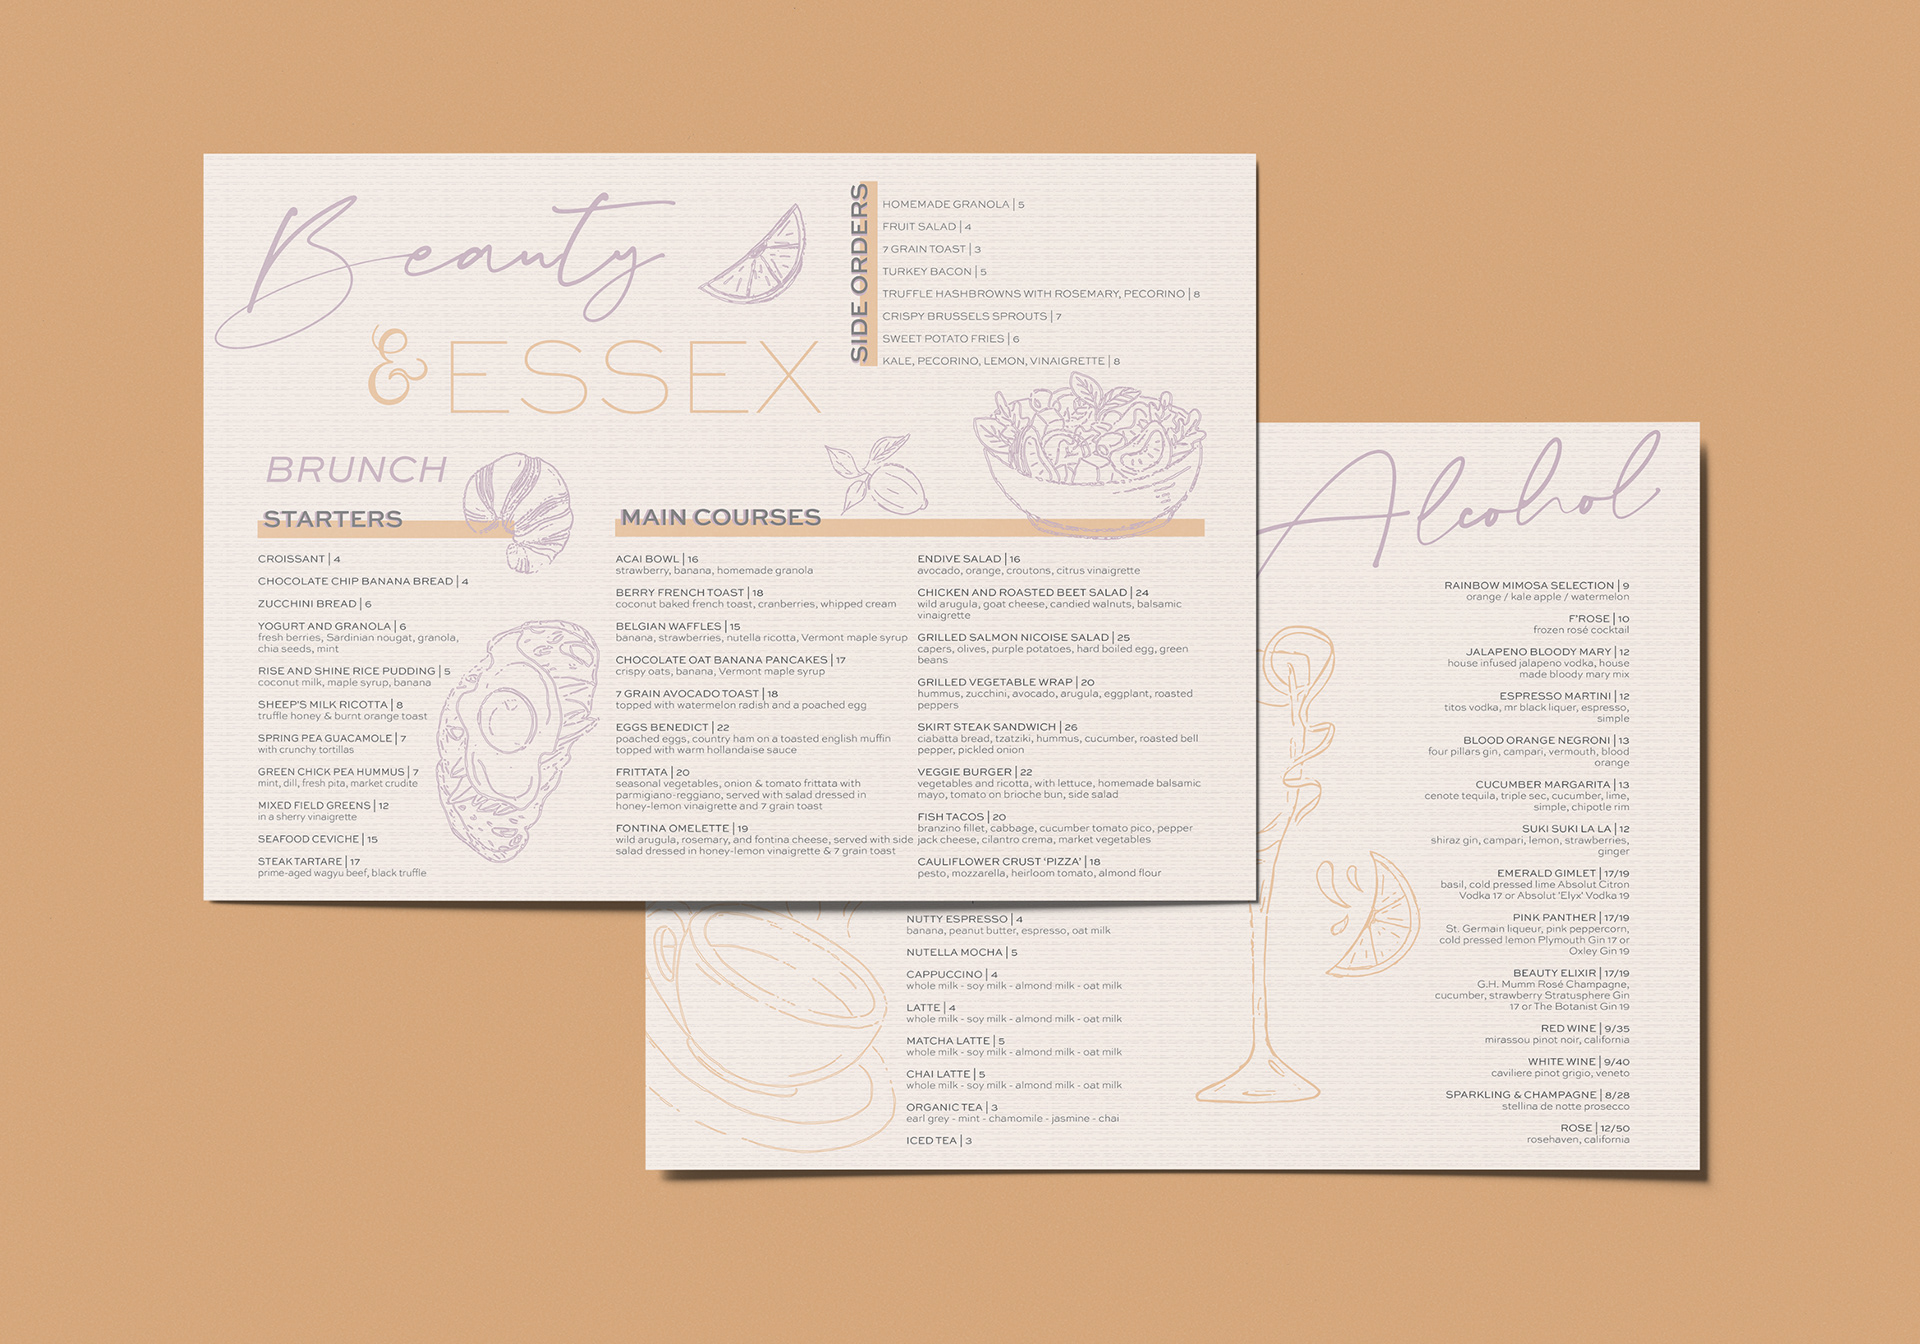 Beauty
& ESSEX
SIDE ORDERS
HOMEMADE GRANOLA | 5
FRUIT SALAD | 4
7 GRAIN TOAST | 3
TURKEY BACON | 5
TRUFFLE HASHBROWNS WITH ROSEMARY, PECORINO | 8
CRISPY BRUSSELS SPROUTS | 7
SWEET POTATO FRIES | 6
KALE, PECORINO, LEMON, VINAIGRETTE | 8
BRUNCH
STARTERS
CROISSANT | 4
CHOCOLATE CHIP BANANA BREAD | 4
ZUCCHINI BREAD | 6
YOGURT AND GRANOLA | 6
fresh berries, Sardinian nougat, granola,
chia seeds, mint
RISE AND SHINE RICE PUDDING | 5
coconut milk, maple syrup, banana
SHEEP'S MILK RICOTTA | 8
truffle honey & burnt orange toast
SPRING PEA GUACAMOLE | 7
with crunchy tortillas
GREEN CHICK PEA HUMMUS | 7
mint, dill, fresh pita, market crudite
MIXED FIELD GREENS | 12
in a sherry vinaigrette
SEAFOOD CEVICHE | 15
STEAK TARTARE | 17
prime-aged wagyu beef, black truffle
MAIN COURSES
ACAI BOWL | 16
strawberry, banana, homemade granola
BERRY FRENCH TOAST | 18
coconut baked french toast, cranberries, whipped cream
BELGIAN WAFFLES | 15
banana, strawberries, nutella ricotta, Vermont maple syrup
CHOCOLATE OAT BANANA PANCAKES | 17
crispy oats, banana, Vermont maple syrup
7 GRAIN AVOCADO TOAST | 18
topped with watermelon radish and a poached egg
EGGS BENEDICT | 22
poached eggs, country ham on a toasted english muffin
topped with warm hollandaise sauce
FRITTATA | 20
seasonal vegetables, onion & tomato frittata with
parmigiano-reggiano, served with salad dressed in
honey-lemon vinaigrette and 7 grain toast
FONTINA OMELETTE | 19
wild arugula, rosemary, and fontina cheese, served with side
salad dressed in honey-lemon vinaigrette & 7 grain toast
ENDIVE SALAD | 16
avocado, orange, croutons, citrus vinaigrette
CHICKEN AND ROASTED BEET SALAD | 24
wild arugula, goat cheese, candied walnuts, balsamic
vinaigrette
GRILLED SALMON NICOISE SALAD | 25
capers, olives, purple potatoes, hard boiled egg, green
beans
GRILLED VEGETABLE WRAP | 20
hummus, zucchini, avocado, arugula, eggplant, roasted
peppers
SKIRT STEAK SANDWICH | 26
ciabatta bread, tzatziki, hummus, cucumber, roasted bell
pepper, pickled onion
VEGGIE BURGER | 22
vegetables and ricotta, with lettuce, homemade balsamic
mayo, tomato on brioche bun, side salad
FISH TACOS | 20
branzino fillet, cabbage, cucumber tomato pico, pepper
jack cheese, cilantro crema, market vegetables
CAULIFLOWER CRUST 'PIZZA' | 18
pesto, mozzarella, heirloom tomato, almond flour
NUTTY ESPRESSO | 4
banana, peanut butter, espresso, oat milk
NUTELLA MOCHA | 5
CAPPUCCINO | 4
whole milk - soy milk - almond milk - oat milk
LATTE | 4
whole milk - soy milk - almond milk - oat milk
MATCHA LATTE | 5
whole milk - soy milk - almond milk - oat milk
CHAI LATTE | 5
whole milk - soy milk - almond milk - oat milk
ORGANIC TEA | 3
earl grey - mint - chamomile - jasmine - chai
ICED TEA | 3
Alcohol
RAINBOW MIMOSA SELECTION | 9
orange / kale apple / watermelon
F'ROSE | 10
frozen rosé cocktail
JALAPENO BLOODY MARY | 12
house infused jalapeno vodka, house
made bloody mary mix
ESPRESSO MARTINI | 12
titos vodka, mr black liquer, espresso,
simple
BLOOD ORANGE NEGRONI | 13
four pillars gin, campari, vermouth, blood
orange
CUCUMBER MARGARITA | 13
cenote tequila, triple sec, cucumber, lime,
simple, chipotle rim
SUKI SUKI LA LA | 12
shiraz gin, campari, lemon, strawberries,
ginger
EMERALD GIMLET | 17/19
basil, cold pressed lime Absolut Citron
Vodka 17 or Absolut 'Elyx' Vodka 19
PINK PANTHER | 17/19
St. Germain liqueur, pink peppercorn,
cold pressed lemon Plymouth Gin 17 or
Oxley Gin 19
BEAUTY ELIXIR | 17/19
G.H. Mumm Rosé Champagne,
cucumber, strawberry Stratusphere Gin
17 or The Botanist Gin 19
RED WINE | 9/35
mirassou pinot noir, california
WHITE WINE | 9/40
caviliere pinot grigio, veneto
SPARKLING & CHAMPAGNE | 8/28
stellina de notte prosecco
ROSE | 12/50
rosehaven, california